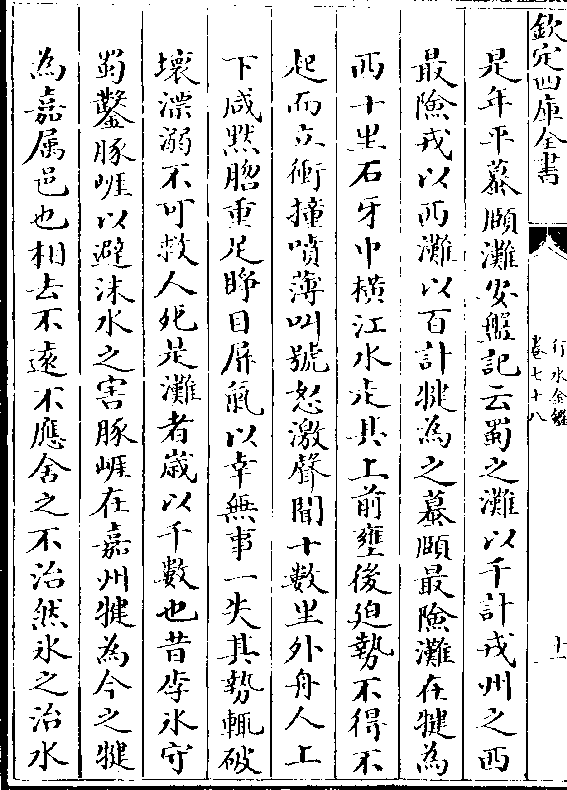 欽定四庫全書
行水金鑑
卷七十八
十一
是年平慕頤灘安盤記云蜀之灘以千計戎州之西
最險戎以西灘以百計犍為之慕頤最險灘在犍為
西十里石牙中橫江水走其上前壅後迫勢不得不
起而立衝撞噴薄叫號怒激聲聞十數里外舟人上
下咸黙膽重足睜目屏氣以幸無事一失其勢輒破
壊漂溺不可救人死是灘者嵗以千數也昔李冰守
蜀鑿豚崕以避沫水之害豚崕在嘉州犍為今之犍
為嘉属邑也相去不遠不應舍之不治然冰之治水